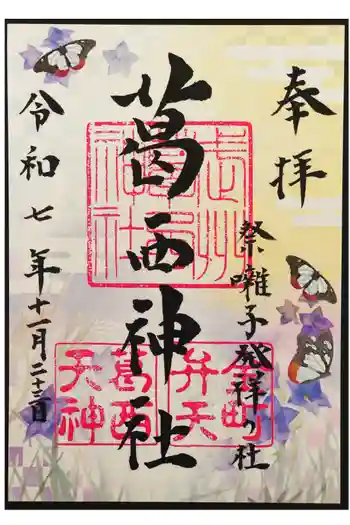 奉拝
祭囃子発祥の社
葛西神社
令和七年十一月二十三日
武州
葛西
神社
金町
弁天
葛西
天神